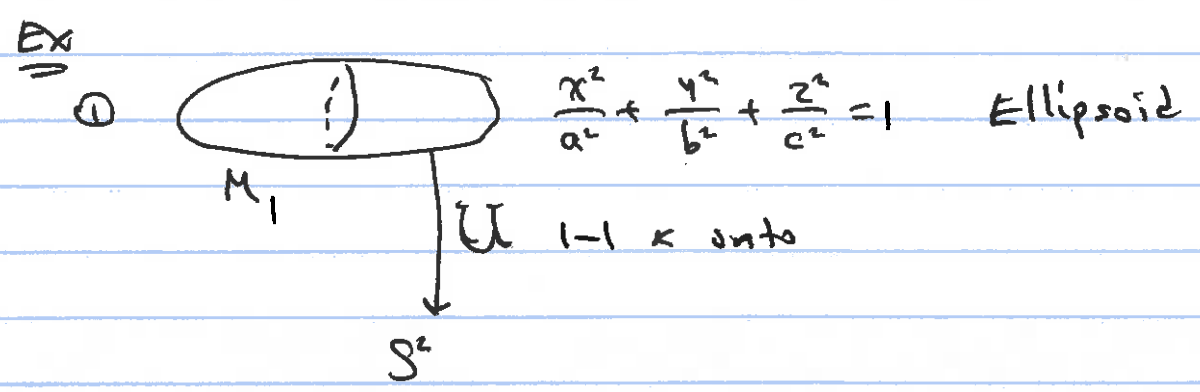 Ex
① x²/a² + y²/b² + z²/c² = 1 Ellipsoid
M₁
U 1-1 & onto
S²